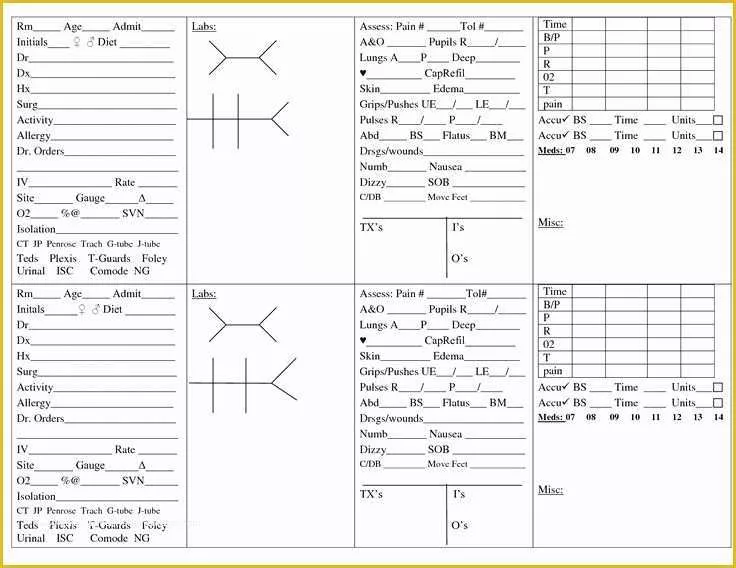 Rm_____ Age____ Admit______
Initials____ ♀ ♂ Diet ________
Dr
Dx
Hx
Surg
Activity
Allergy
Dr. Orders
IV________________ Rate _______
Site_______ Gauge______Δ____
O2_____ %@_______ SVN_____
Isolation
CT JP Penrose Trach G-tube J-tube
Teds Plexis T-Guards Foley
Urinal ISC Comode NG
Labs:
Assess: Pain # ______Tol #____
A&O _______ Pupils R_____/____
Lungs A____P____ Deep_______
♥__________ CapRefil_________
Skin_________ Edema_________
Grips/Pushes UE___/___ LE___/___
Pulses R____/____ P____/____
Abd_____ BS___ Flatus___ BM___
Drsgs/wounds
Numb_______ Nausea _________
Dizzy_______ SOB ___________
C/DB ________ Move Feet ________
TX's
I's
O's
Time
B/P
P
R
02
T
pain
Accu✓ BS ____ Time ____ Units___□
Accu✓ BS ____ Time ____ Units___□
Meds: 07 08 09 10 11 12 13 14
Misc:
Rm_____ Age____ Admit______
Initals______♀ ♂ Diet ________
Dr
Dx
Hx
Surg
Activity
Allergy
Dr. Orders
IV________________ Rate _______
Site_______ Gauge______Δ____
O2_____ %@_______ SVN_____
Isolation
CT JP Penrose Trach G-tube J-tube
Teds Plexis T-Guards Foley
Urinal ISC Comode NG
Labs:
Assess: Pain # _______Tol#____
A&O _______ Pupils R_____/____
Lungs A____P____ Deep_______
♥__________ CapRefil_________
Skin_________ Edema_________
Grips/Pushes UE___/___ LE___/___
Pulses R____/____ P____/____
Abd_____ BS___ Flatus___ BM___
Drsgs/wounds
Numb_______ Nausea _________
Dizzy_______ SOB ___________
C/DB ________ Move Feet ________
TX's
I's
O's
Time
B/P
P
R
02
T
pain
Accu✓ BS ____ Time ____ Units___□
Accu✓ BS ____ Time ____ Units___□
Meds: 07 08 09 10 11 12 13 14
Misc: